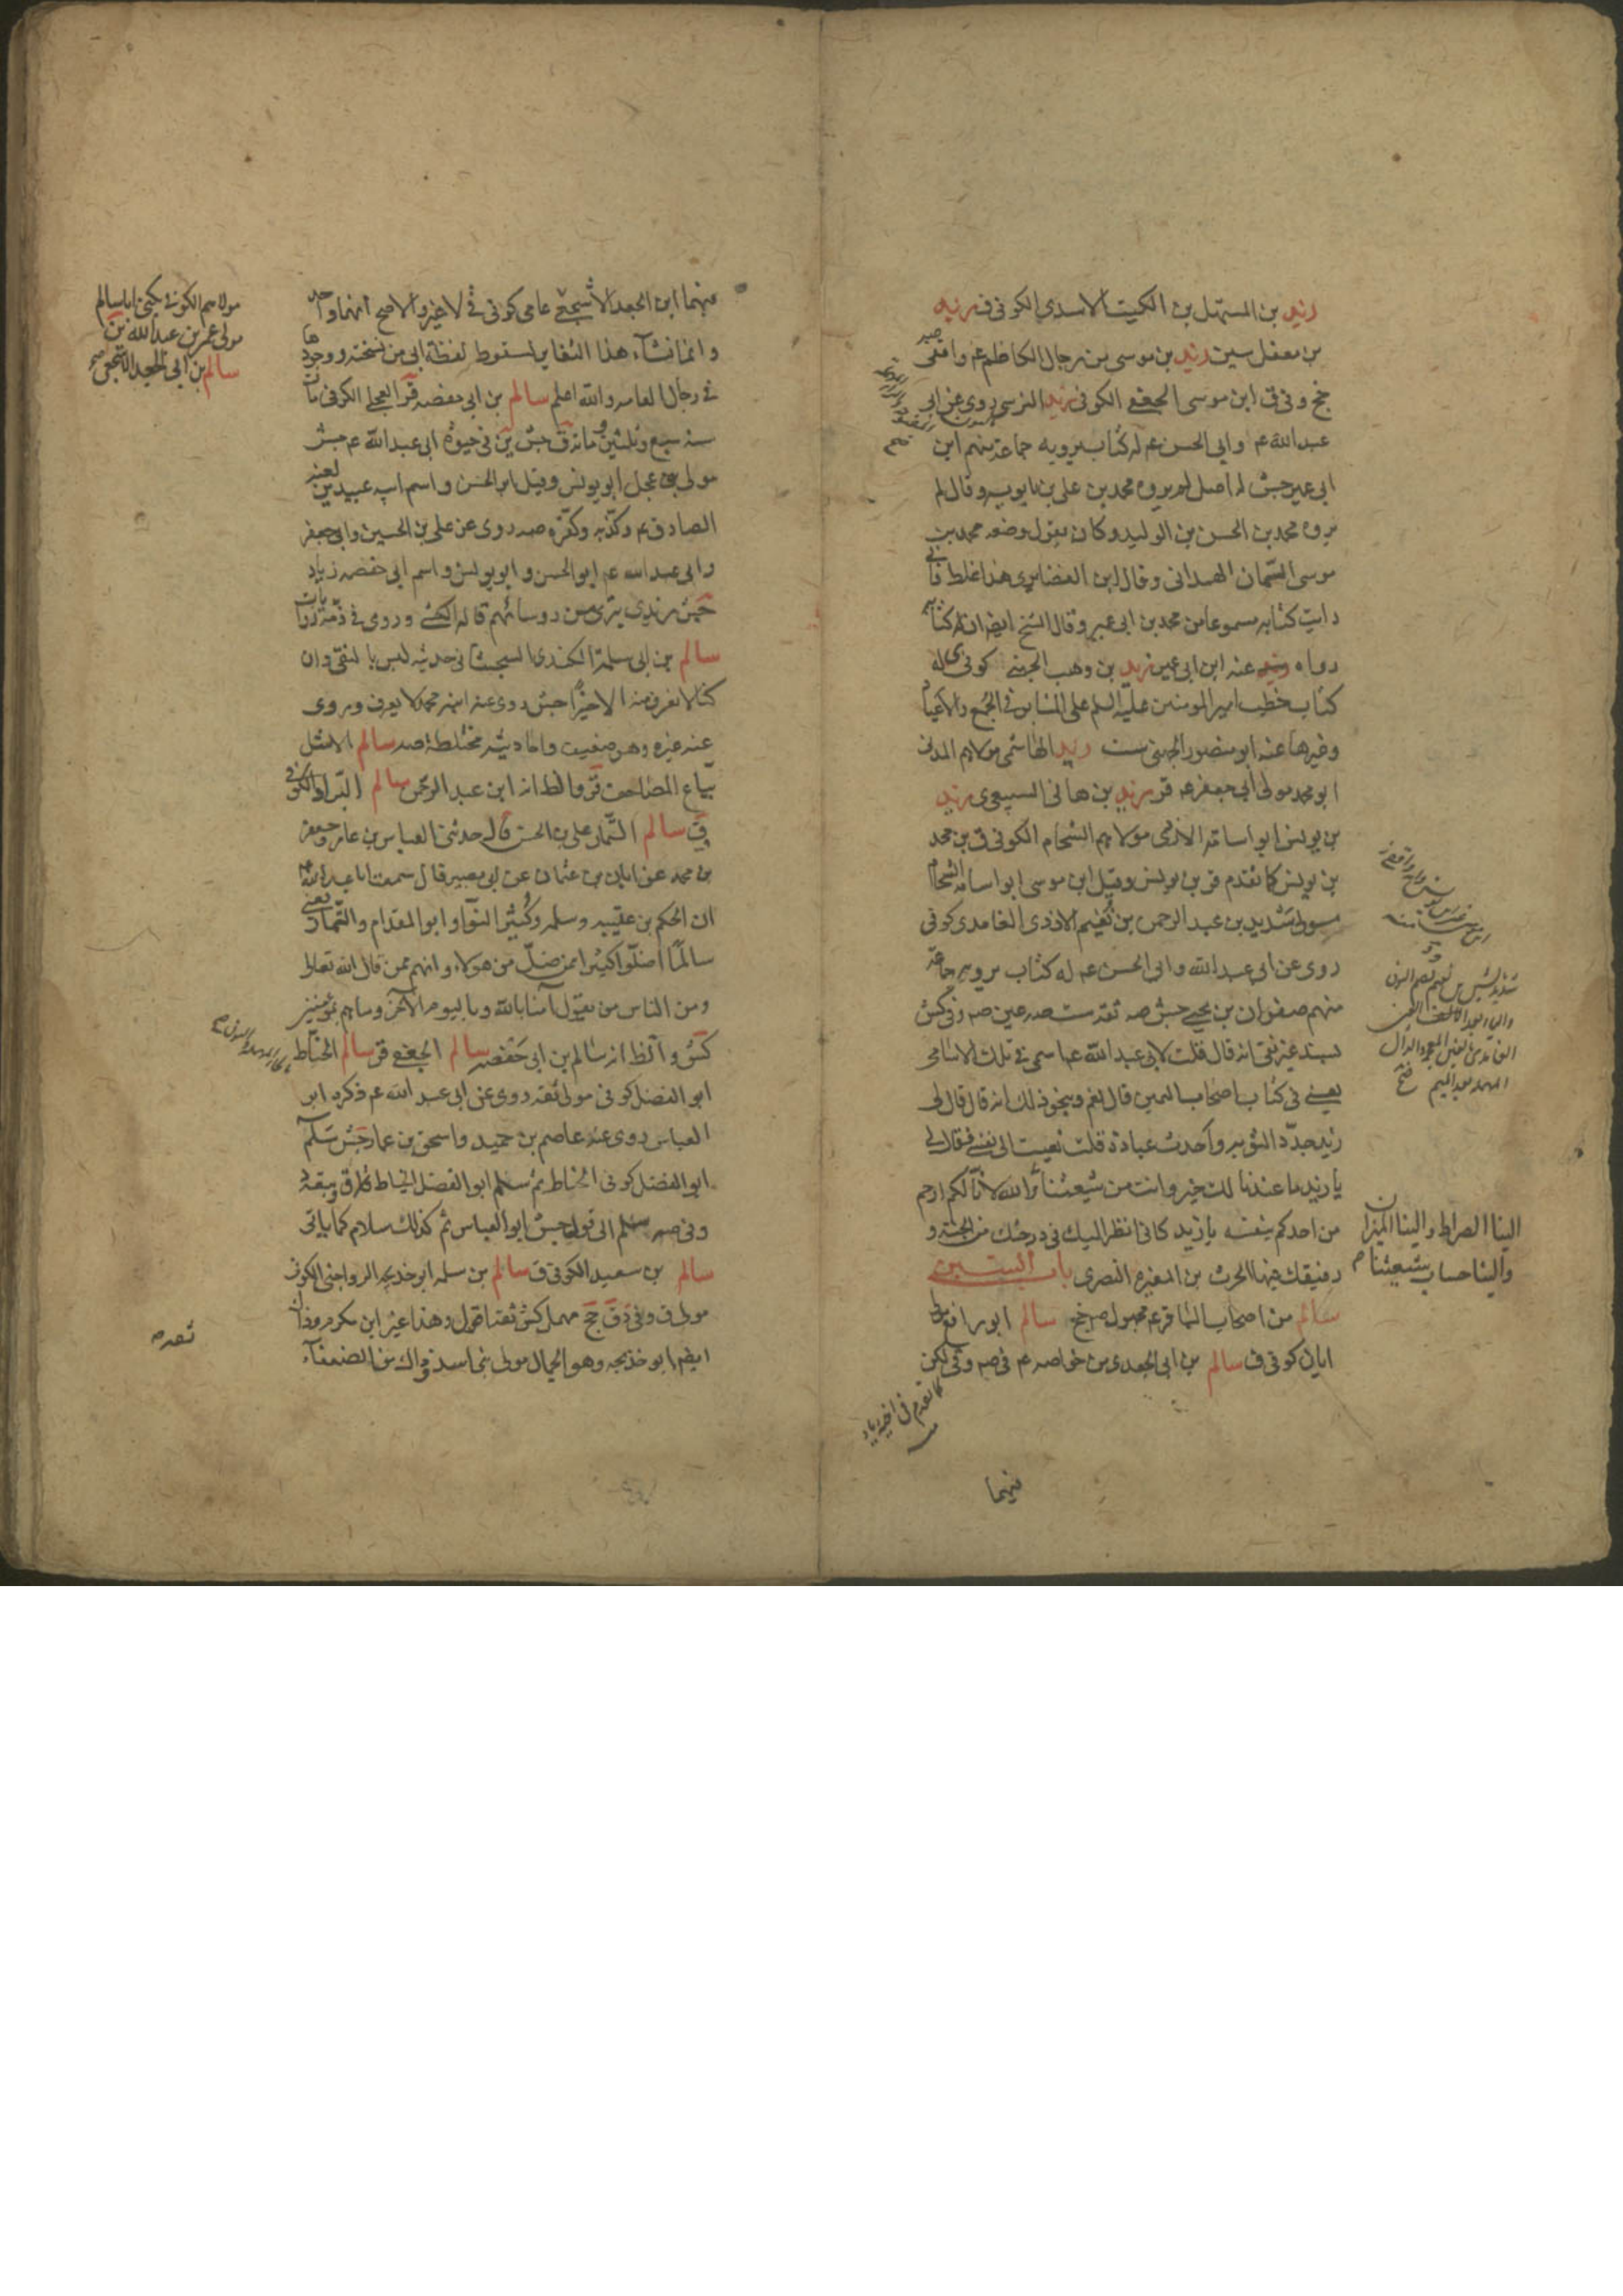 زيد بن المستهل بن الكميت الاسدي الكوفى ق زيد
بن معقل سين زيد بن موسى من رجال الكاظم ع واقفى
جخ وفى ق ابن موسى الجعفى الكوفى زيد النرسى روى عن ابى
عبد الله ع وابي الحسن ع له كتاب يرويه جماعة منهم ابن
ابى عمير جش له اصل لم يروه محمد بن على بن بابويه وقال لم
يروه محمد بن الحسن بن الوليد وكان يقول وضعه محمد بن
موسى السمان الهمدانى وقال ابن الغضايرى هذا غلط فانى
رايت كتابه مسموعا من محمد بن ابى عمير وقال الشيخ ايضا ان له كتابا
رواه عنه ابن ابى عمير زيد بن وهب الجهنى كوفى ى له
كتاب خطب امير المومنين عليه السلم على المنابر فى الجمع والاعياد
وغيرها عنه ابو منصور الجهنى ست زيد الهاشمى مولاهم المدنى
ابو محمد مولى ابى جعفر ع قر زيد بن هانى السبيعى ى زيد
بن يونس ابو اسامة الازدى مولاهم الشحام الكوفى ق بن محمد
بن يونس كما تقدم قر بن يونس وقيل ابن موسى ابو اسامة الشحام
مولى شديد بن عبد الرحمن بن نعيم الازدى الغامدى كوفى
روى عن ابى عبد الله وابى الحسن ع له كتاب يرويه جماعة
منهم صفوان بن يحيى جش صه ثقة ست صه عين صه وفى كش
بسند غير نقى انه قال قلت لابى عبد الله ع اسمى فى تلك الاسامى
يعنى فى كتاب اصحاب اليمين قال نعم وبنحو ذلك انه قال قال لى
زيد جدد التوبه واحدث عبادة قلت نعيت الى نفسى فقال لى
يا زيد ما عندنا لك خير وانت من شيعتنا والله لانا لكم ارحم
من احدكم بنفسه يا زيد كانى انظر اليك فى درجتك من الجنة و
رفيقك فيها الحرث بن المغيره النصرى باب السين
سالم من اصحاب الباقر ع مجهول صه جخ سالم ابو رافع مولى
ابان كوفى ق سالم بن ابى الجعد ى من خواصه ع فى صه وفى لكن
الينا الصراط والينا الميزان
والينا حساب شيعتنا صه
كما تقدم فى اخيه زياد
فيهما
فيهما ابن الجعد الاشجعى عامى كوفى فى الاخير والاصح انهما واحد
وانما نشأ هذا التغاير لسقوط لفظة ابى من نسخته ووجودها
فى رجال العامه والله اعلم سالم بن ابى حفصه قر العجلى الكوفى مات
سنه سبع وثلثين ومائة ق جش ين فى حيوة ابى عبد الله ع جش
مولى بنى عجل ابو يونس وقيل ابو الحسن واسم ابيه عبيد ين لعنه
الصادق ع وكذبه وكفره صه روى عن على بن الحسين وابى جعفر
وابى عبد الله ع ابو الحسن وابو يونس واسم ابى حفصه زياد
جش زيدى بترى من روسائهم قاله الكشى وروى فى ذمه روايات
سالم بن ابى سلمة الكندى السجستانى حديثه ليس بالنقى وان
كنا لا نعرف منه الا خيرا جش روى عنه ابنه محمد لا يعرف وروى
عنه غيره وهو ضعيف واحاديثه مختلطة صه سالم الاشل
بياع المصاحف قر والظ انه ابن عبد الرحمن سالم البراد الكوفى
ق سالم التمار على بن الحسن قال حدثنى العباس بن عامر وجعفر
بن محمد عن ابان بن عثمان عن ابى بصير قال سمعت ابا عبد الله ع
ان الحكم بن عتيبه وسلمه وكثير النوا وابو المقدام والتمار يعنى
سالما اضلوا كثيرا ممن ضل من هولاء وانهم ممن قال الله تعالى
ومن الناس من يقول آمنا بالله وباليوم الآخر وما هم بمؤمنين
كش والظ انه سالم بن ابى حفصه سالم الجعفى قر سالم الحناط
ابو الفضل كوفى مولى ثقة روى عن ابى عبد الله ع ذكره ابو
العباس روى عنه عاصم بن حميد واسحق بن عمار جش سلم
ابو الفضل كوفى الحناط ثم سلم ابو الفضل الحناط
وفى صه سلم الى قوله جش ابو العباس ثم كذلك سلام كما ياتى
سالم بن سعيد الكوفى ق سالم بن سلمه ابو خديجه الرواجنى الكوفى
مولى ق وفى دق جخ مهمل كش ثقة اقول وهذا غير ابن مكرم وذاك
ايضا ابو خديجه وهو الجمال مولى بنى اسد وذاك من الضعفاء
مولاهم الكوفى يكنى ابا سالم
مولى عمر بن عبد الله ق
سالم بن ابى الجعد الاشجعى